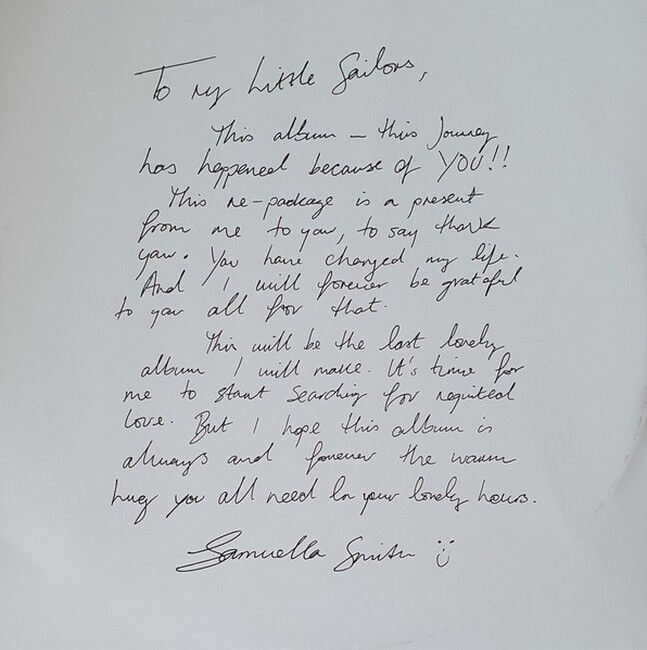 To my Little Sailors,
This album - this Journey
has happened because of YOU!!
This re-package is a present
from me to you, to say thank
you. You have changed my life.
And I will forever be grateful
to you all for that.
This will be the last lonely
album I will make. It's time for
me to start searching for requited
love. But I hope this album is
always and forever the warm
hug you all need in your lonely hours.
Samuella Smith :)